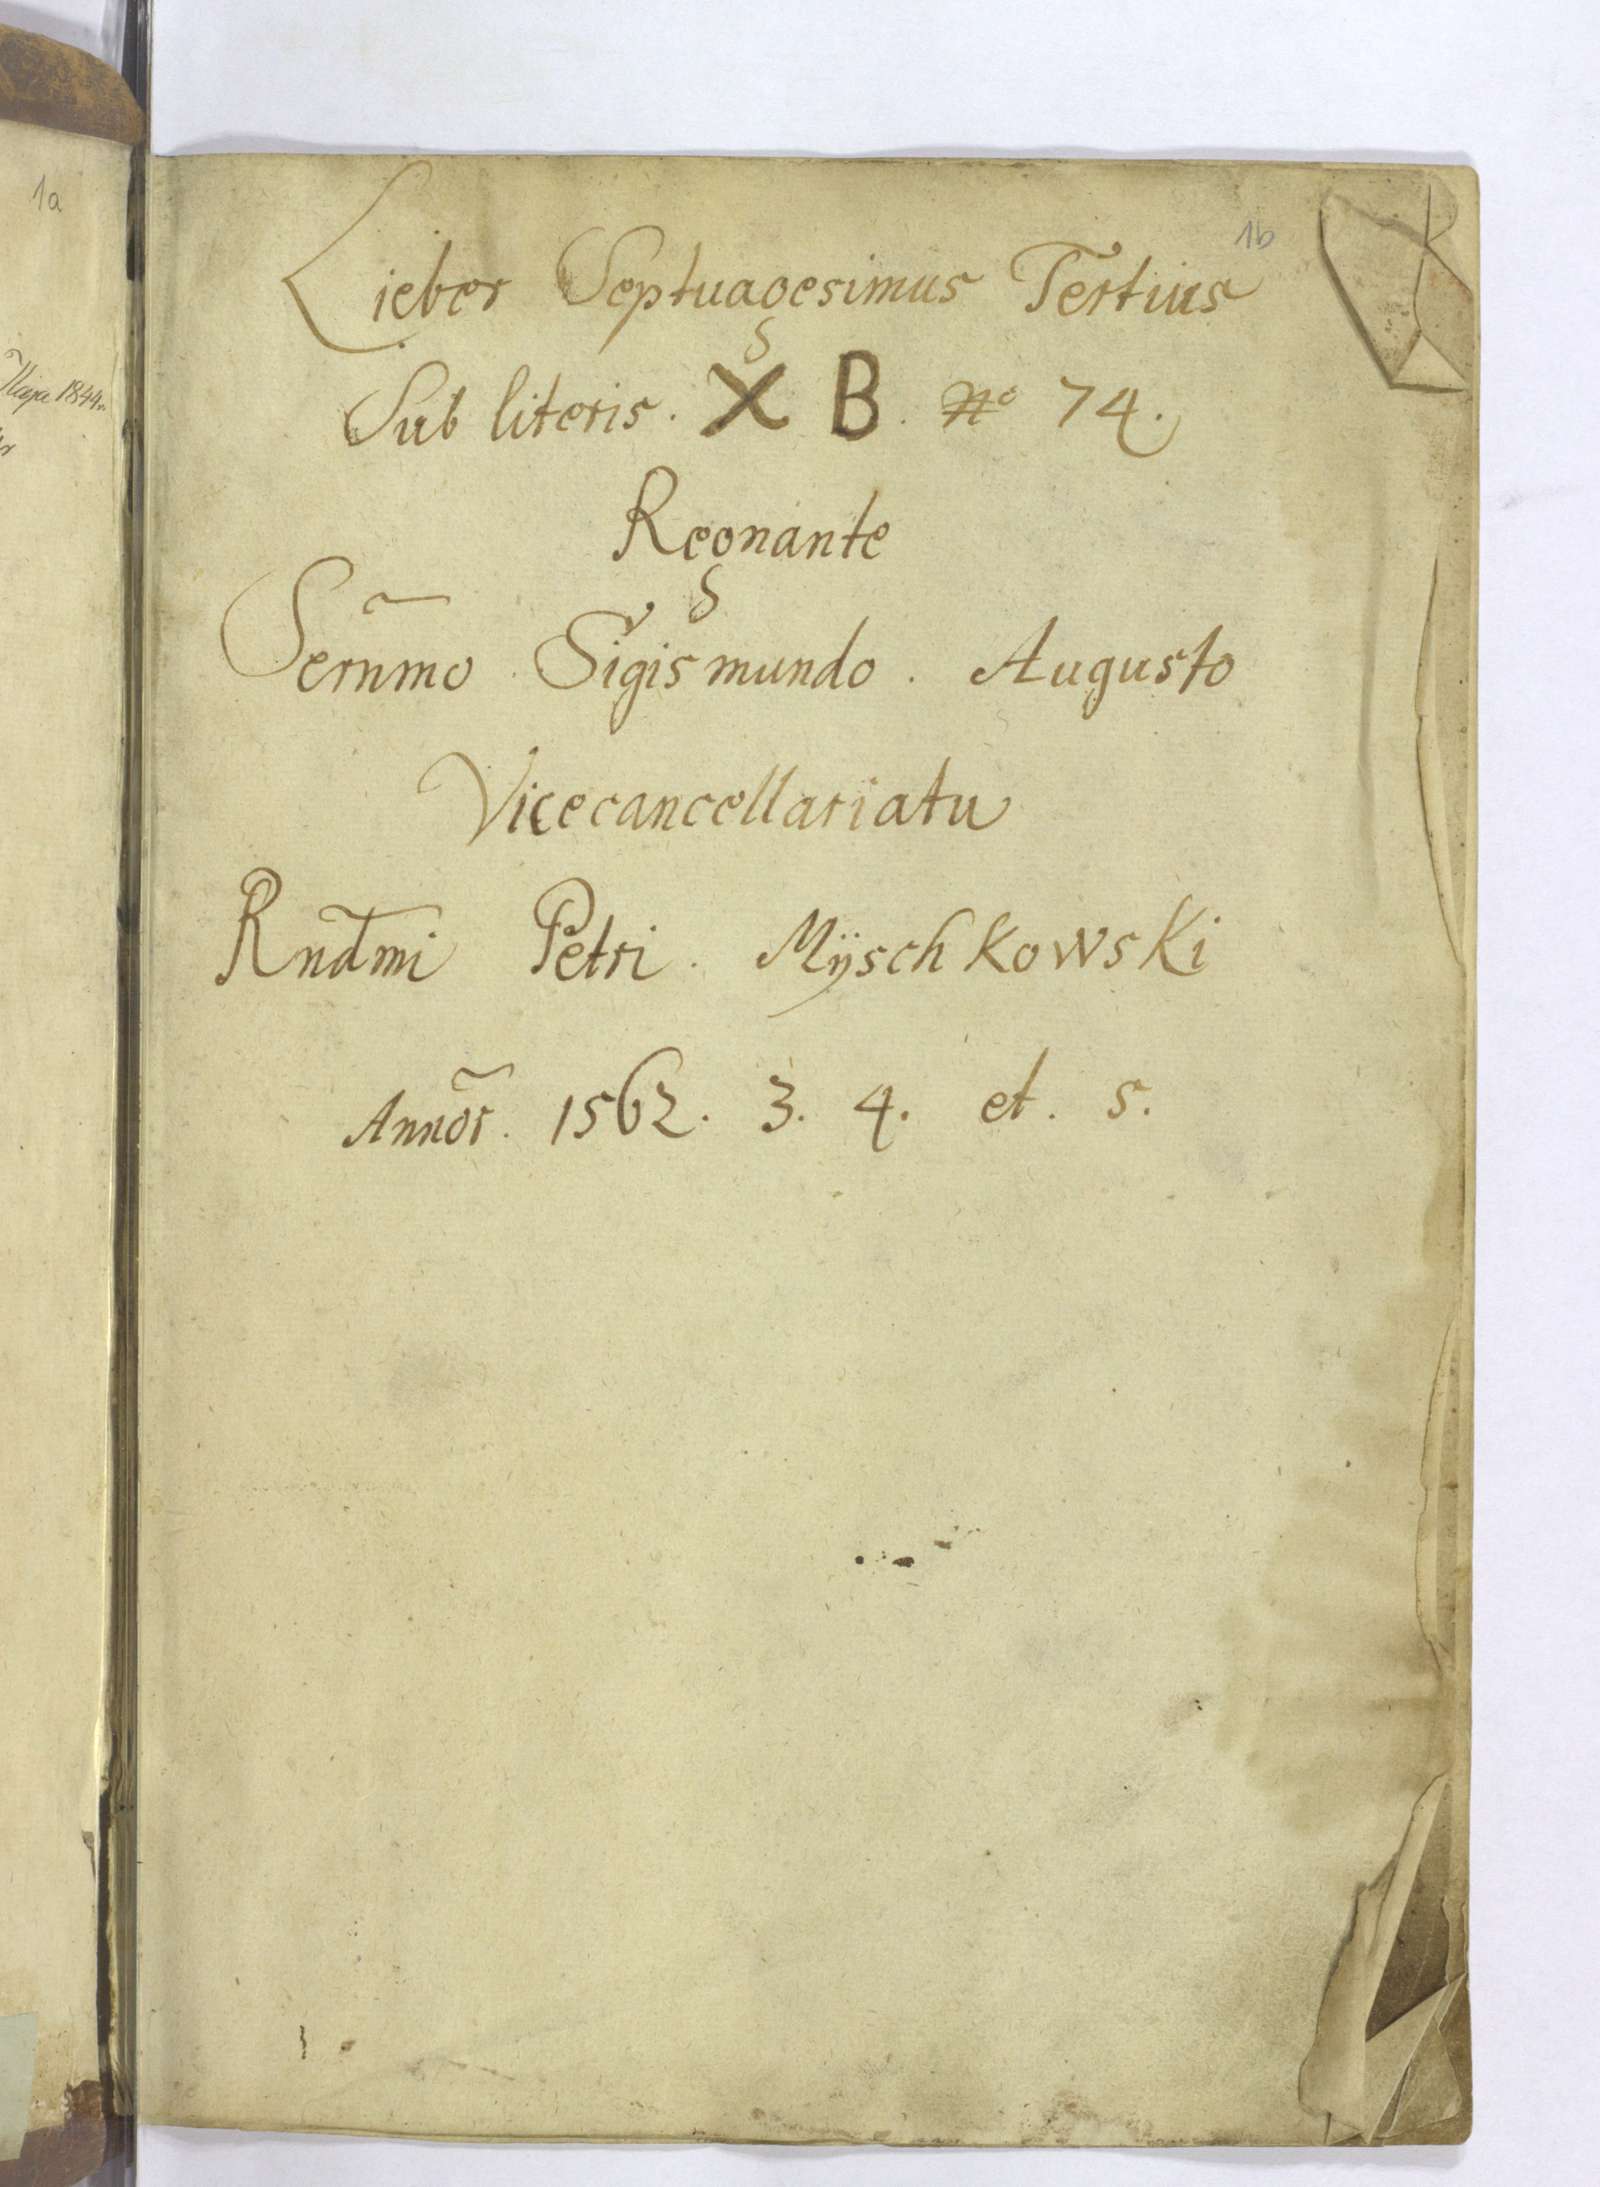 1a
Maja 1844.
1b
Lieber Septuagesimus Tertius
Sub literis. X B. No 74.
Regnante
Sernmo Sigismundo. Augusto
Vicecancellariatu
Rndmi Petri. Mÿschkowski
Annor. 1562. 3. 4. et. 5.